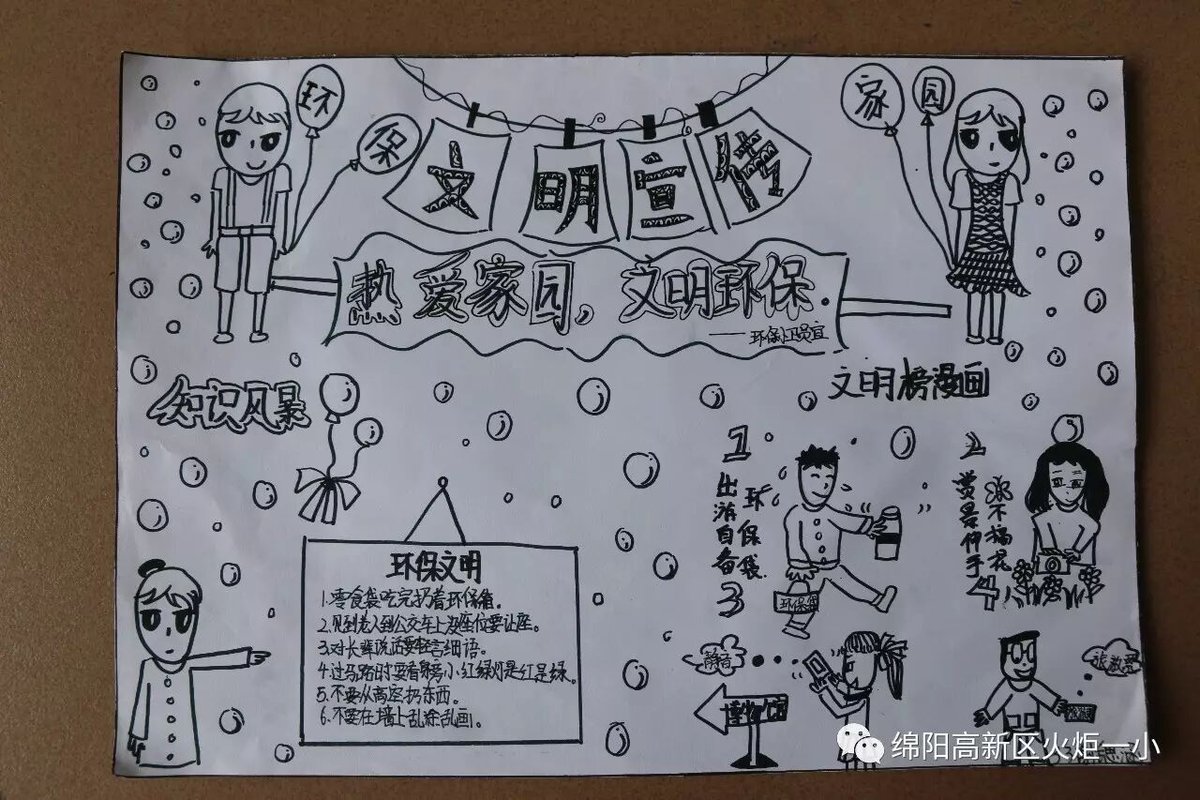 环保
家园
文明宣传
热爱家园，文明环保.
知识风暴
文明榜漫画
环保文明
1.零食袋吃完扔看环保箱。
2.见到老人到公交车上没座位要让座。
3.对长辈说话要轻言细语。
4.过马路时要看旁小红绿灯是红是绿。
5.不要从高空扔东西。
6.不要在墙上乱涂乱画。
1
出游自备
环保袋.
2
3
静音
博物馆
4
绵阳高新区火炬一小